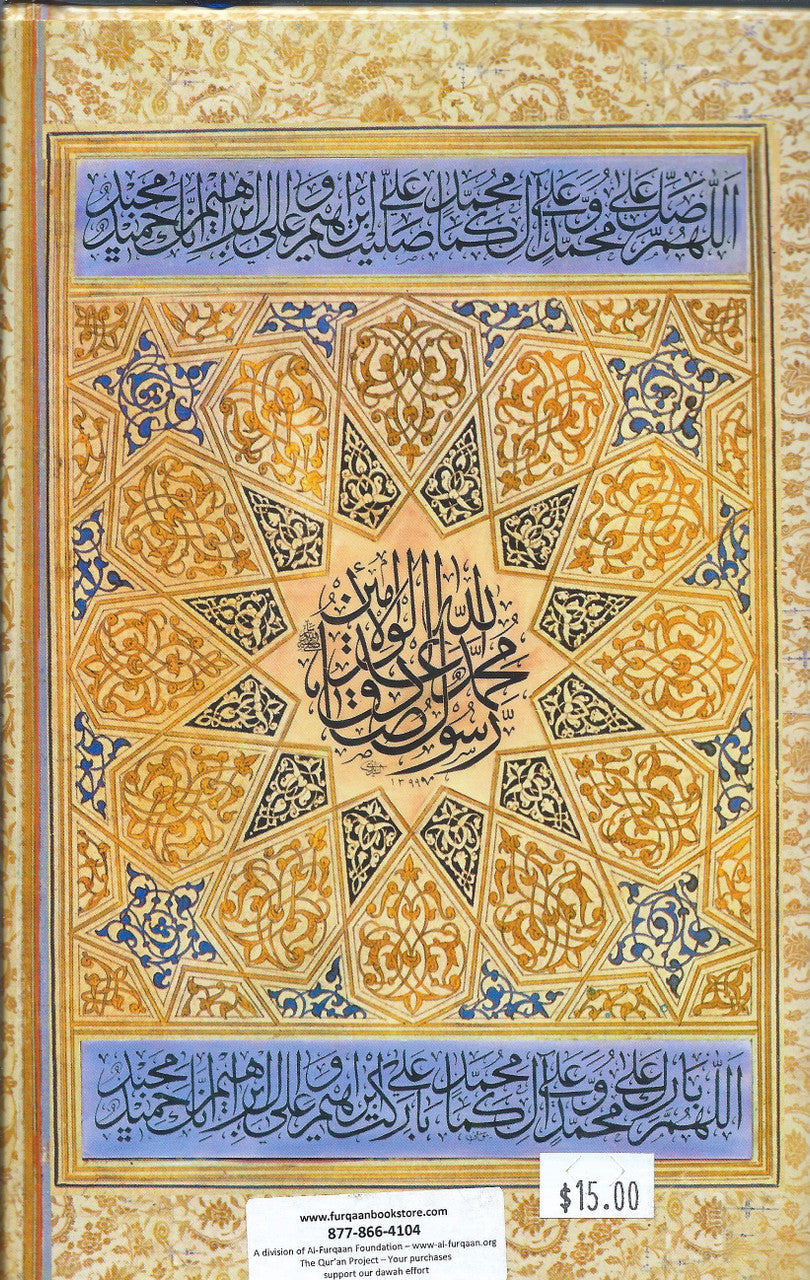 اللّهم صلّ على محمد وعلى آل محمد كما صليت على ابرهيم وعلى آل ابرهيم انك حميد مجيد
محمد رسول الله صادق الوعد الامين
١٣٩٩
اللّهم بارك على محمد وعلى آل محمد كما باركت على ابرهيم وعلى آل ابرهيم انك حميد مجيد
$15.00
www.furqaanbookstore.com
877-866-4104
A division of Al-Furqaan Foundation – www-al-furqaan.org
The Qur'an Project – Your purchases
support our dawah effort